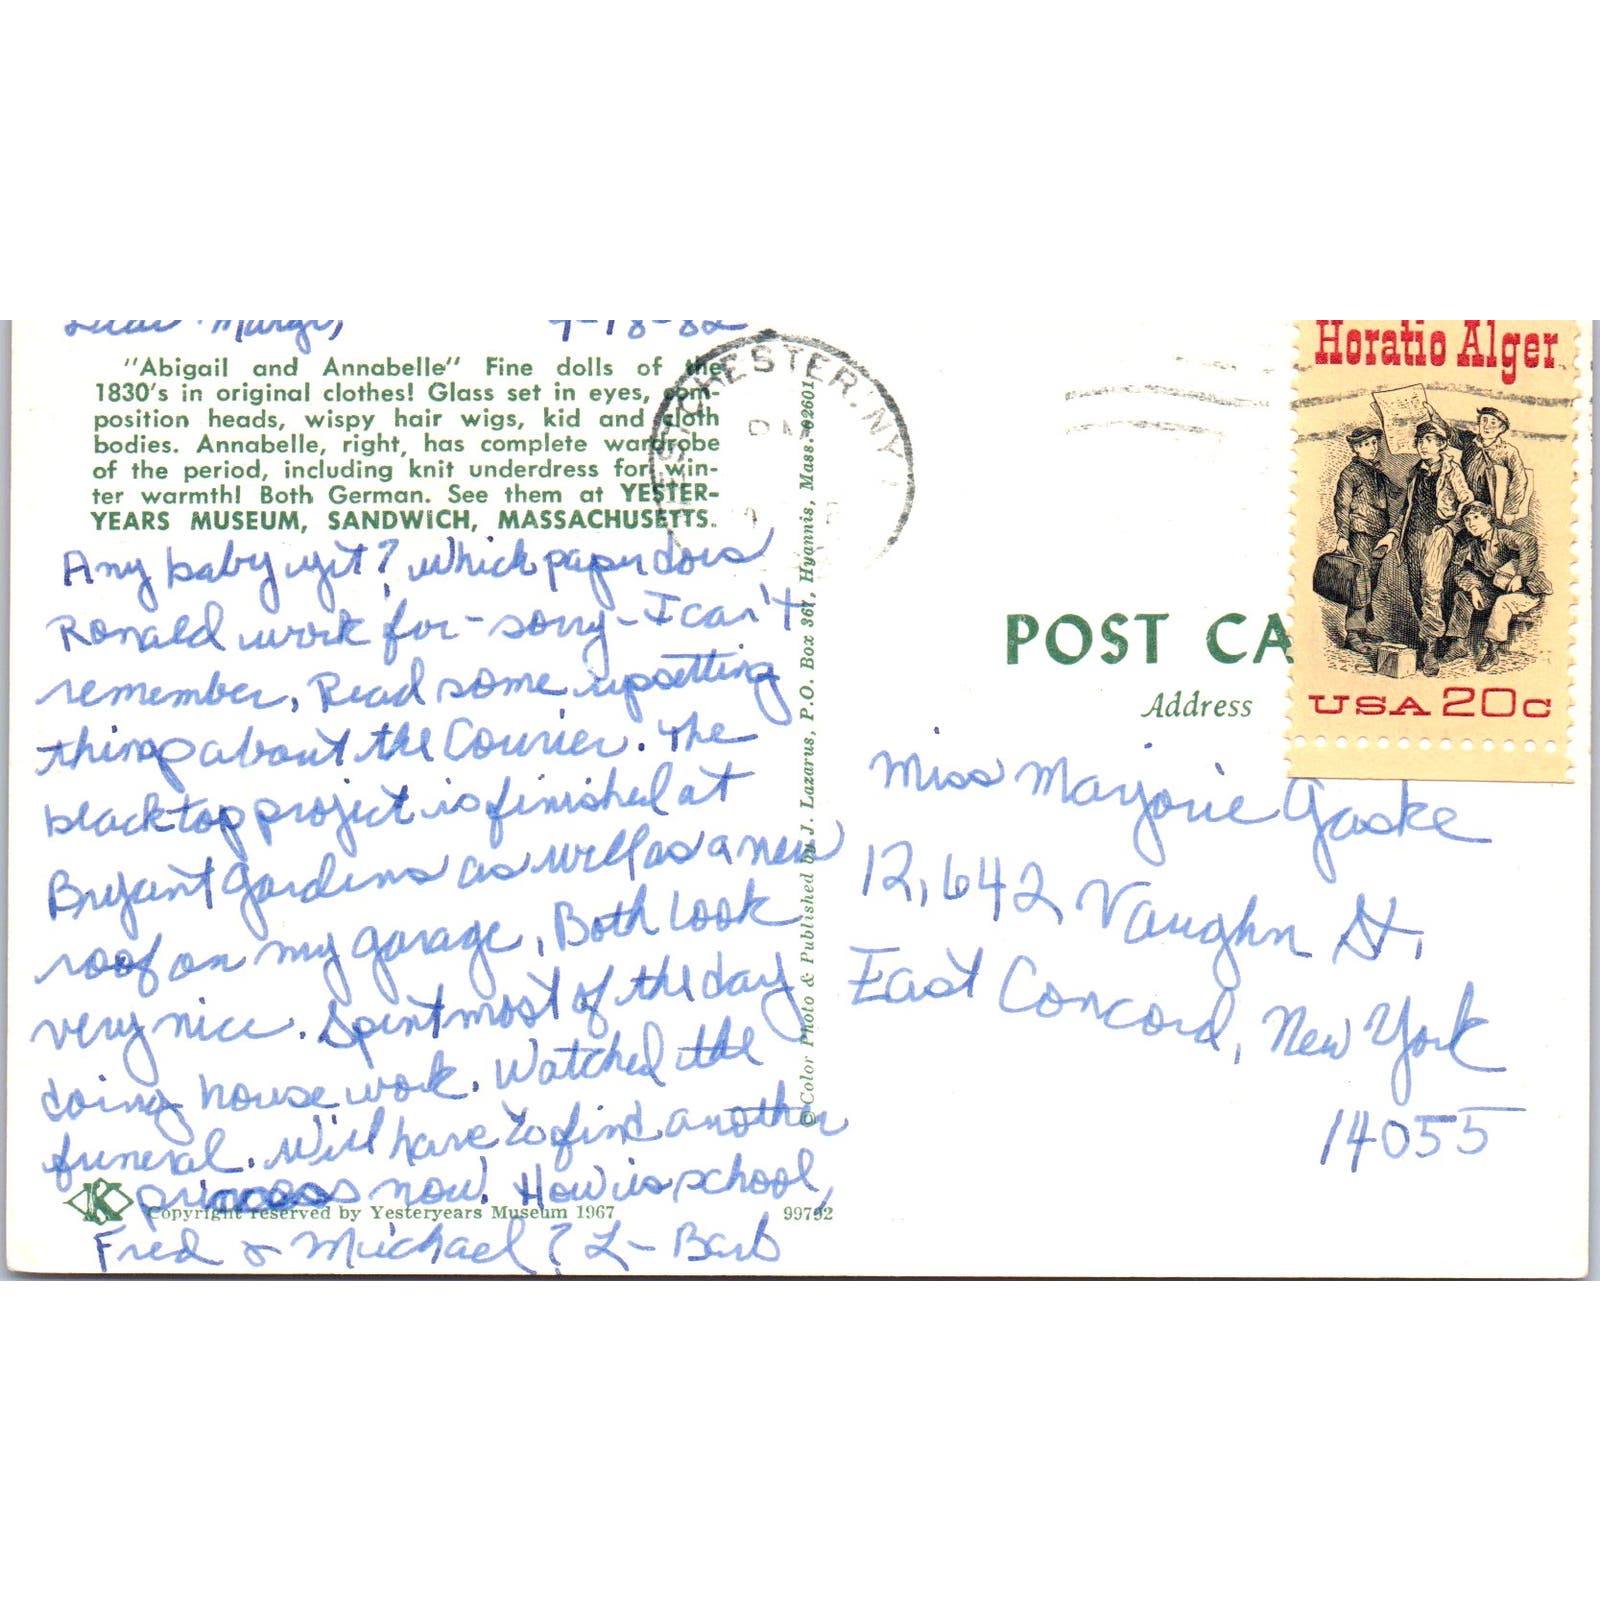 Dear Margi, 9-18-82
"Abigail and Annabelle" Fine dolls of the
1830's in original clothes! Glass set in eyes, com-
position heads, wispy hair wigs, kid and cloth
bodies. Annabelle, right, has complete wardrobe
of the period, including knit underdress for win-
ter warmth! Both German. See them at YESTER-
YEARS MUSEUM, SANDWICH, MASSACHUSETTS.
Any baby yit? Which paper does
Ronald work for - sorry - I can't
remember. Read some upsetting
things about the Courier. The
blacktop project is finished at
Bryant Gardens as well as a new
roof on my garage. Both look
very nice. Spent most of the day
doing house work. Watched the
funeral. Will have to find another
princess now. How is school,
Fred & Michael? L- Barb
K
Copyright reserved by Yesteryears Museum 1967
99792
© Color Photo & Published by J. Lazarus, P.O. Box 367, Hyannis, Mass. 02601
CHESTER, NY
PM
POST CA
Address
Horatio Alger
USA 20c
Miss Marjorie Gaske
12,642 Vaughn St,
East Concord, New York
14055